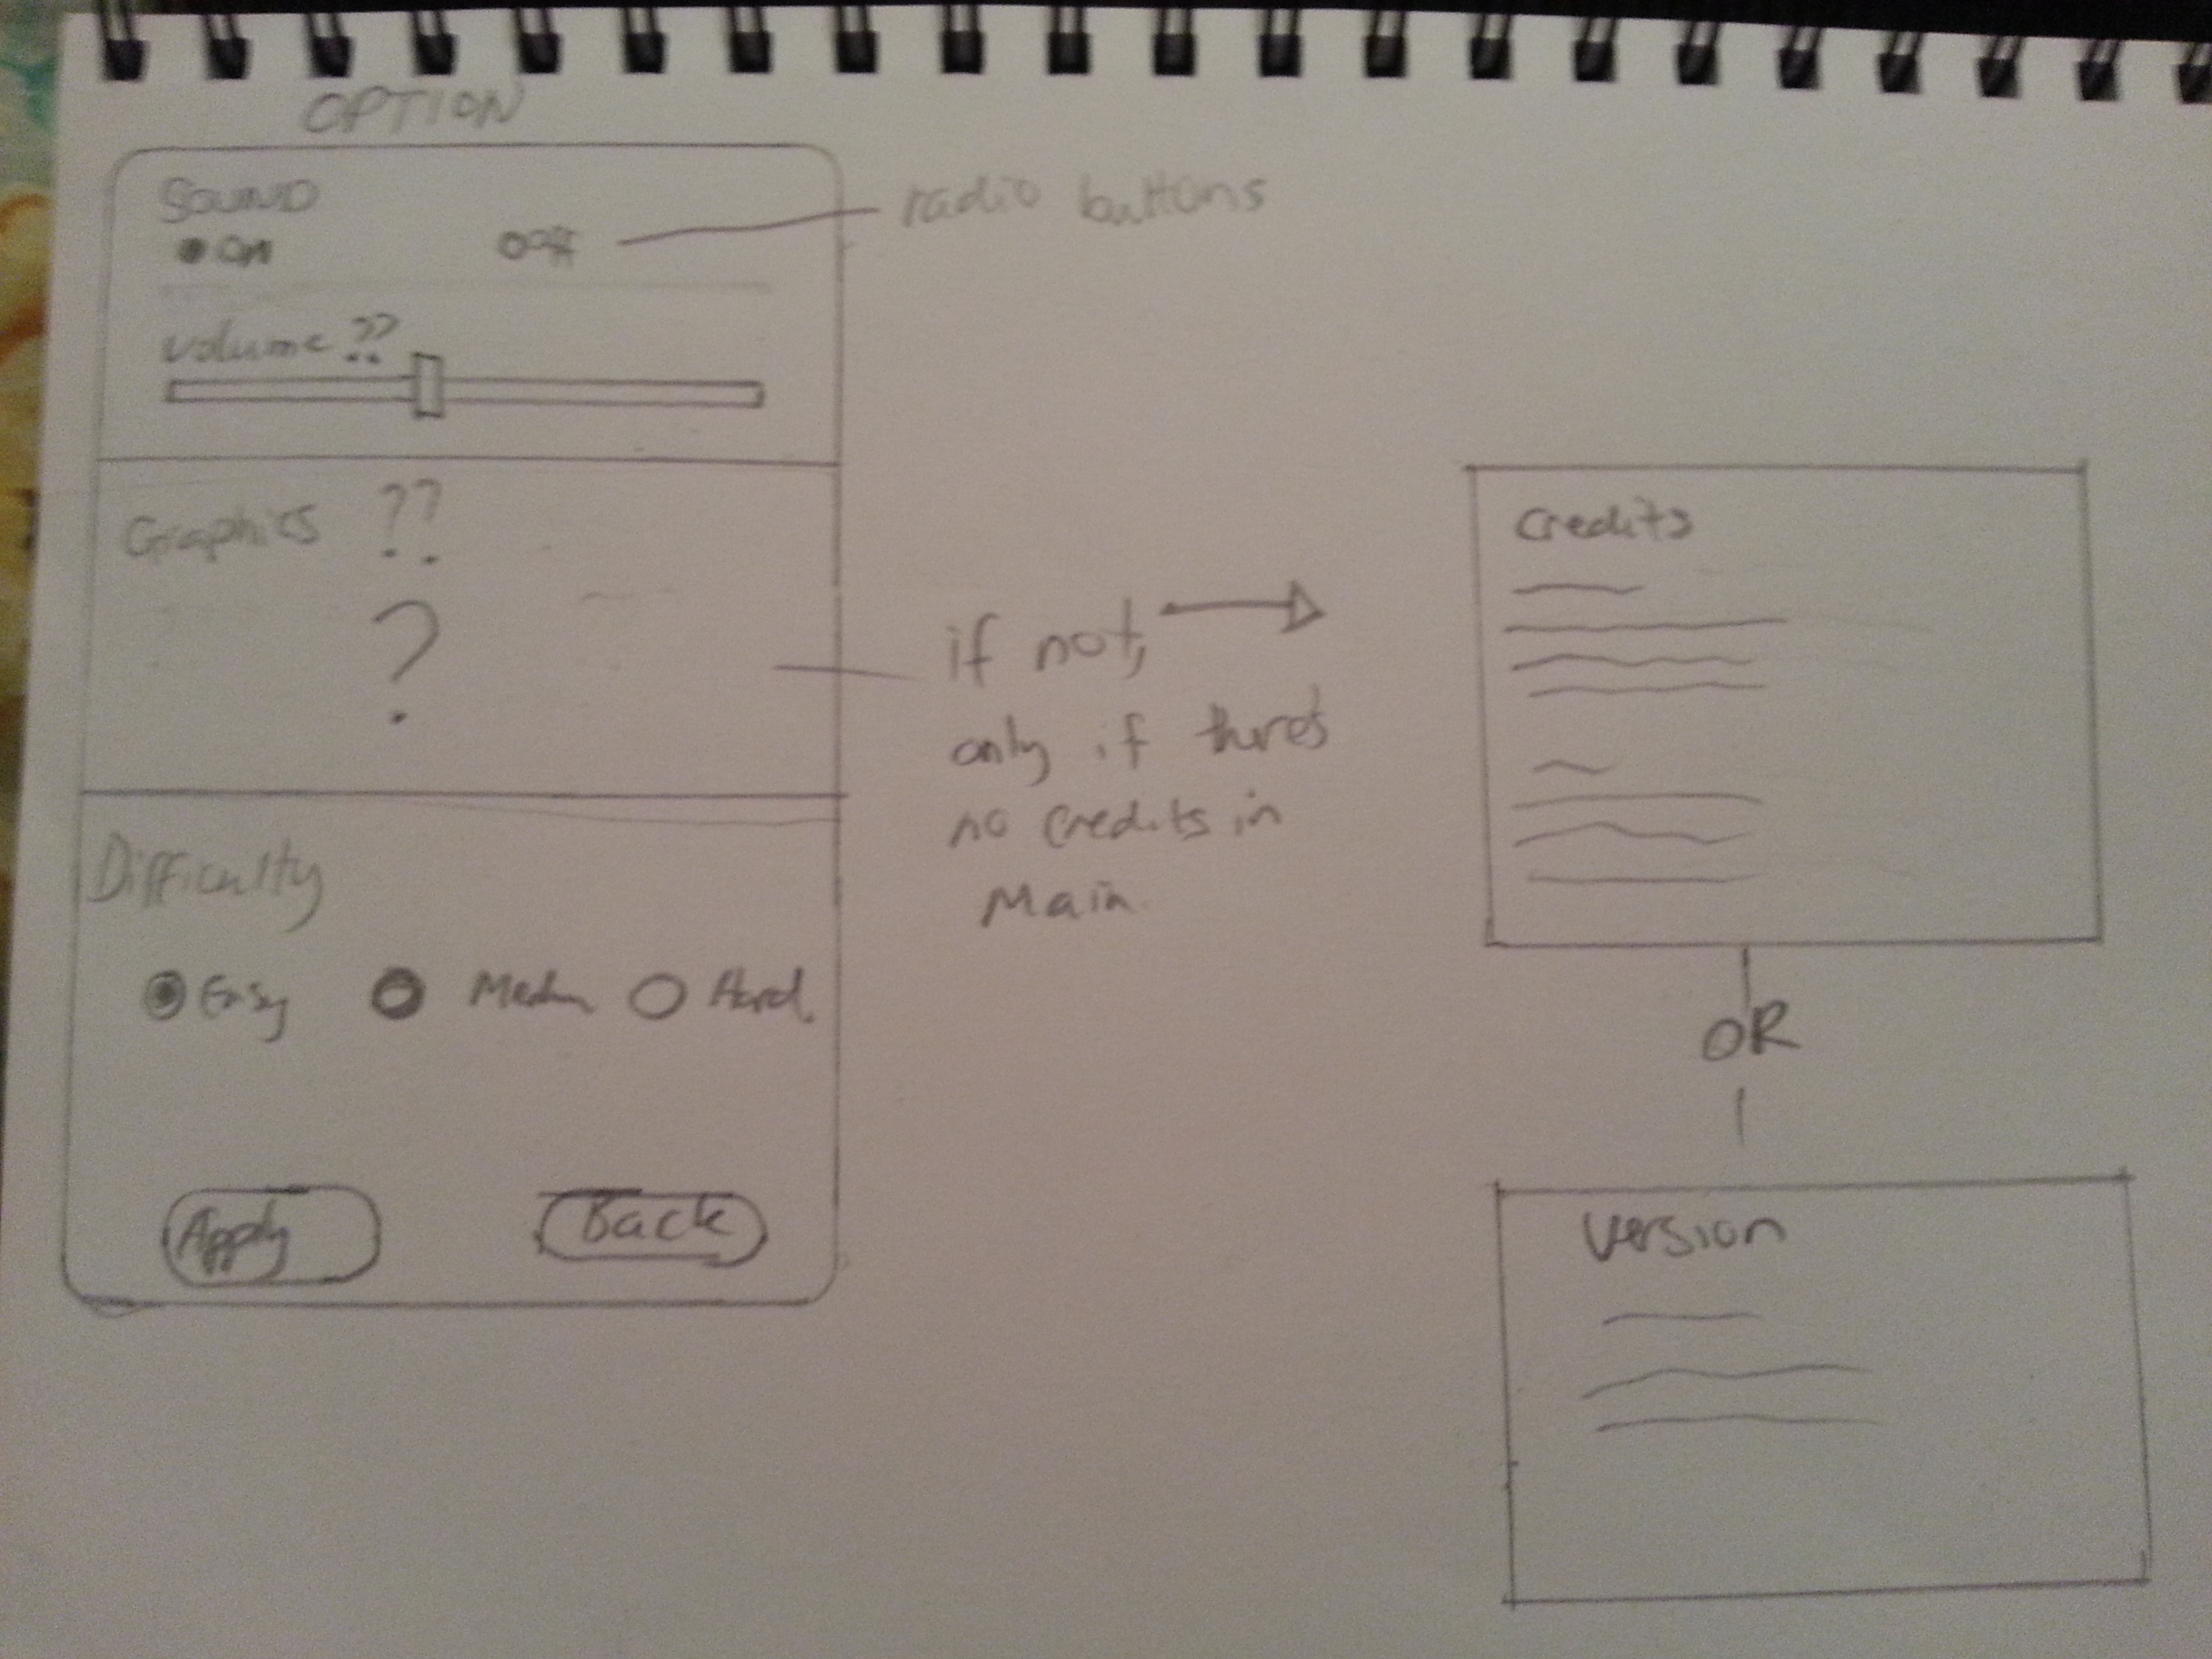 OPTION
SOUND
ON OFF
radio buttons
volume ??
Graphics ??
?
if not,
only if there's
no credits in
Main.
Difficulty
Easy Medium Hard.
Apply Back
Credits
OR
version